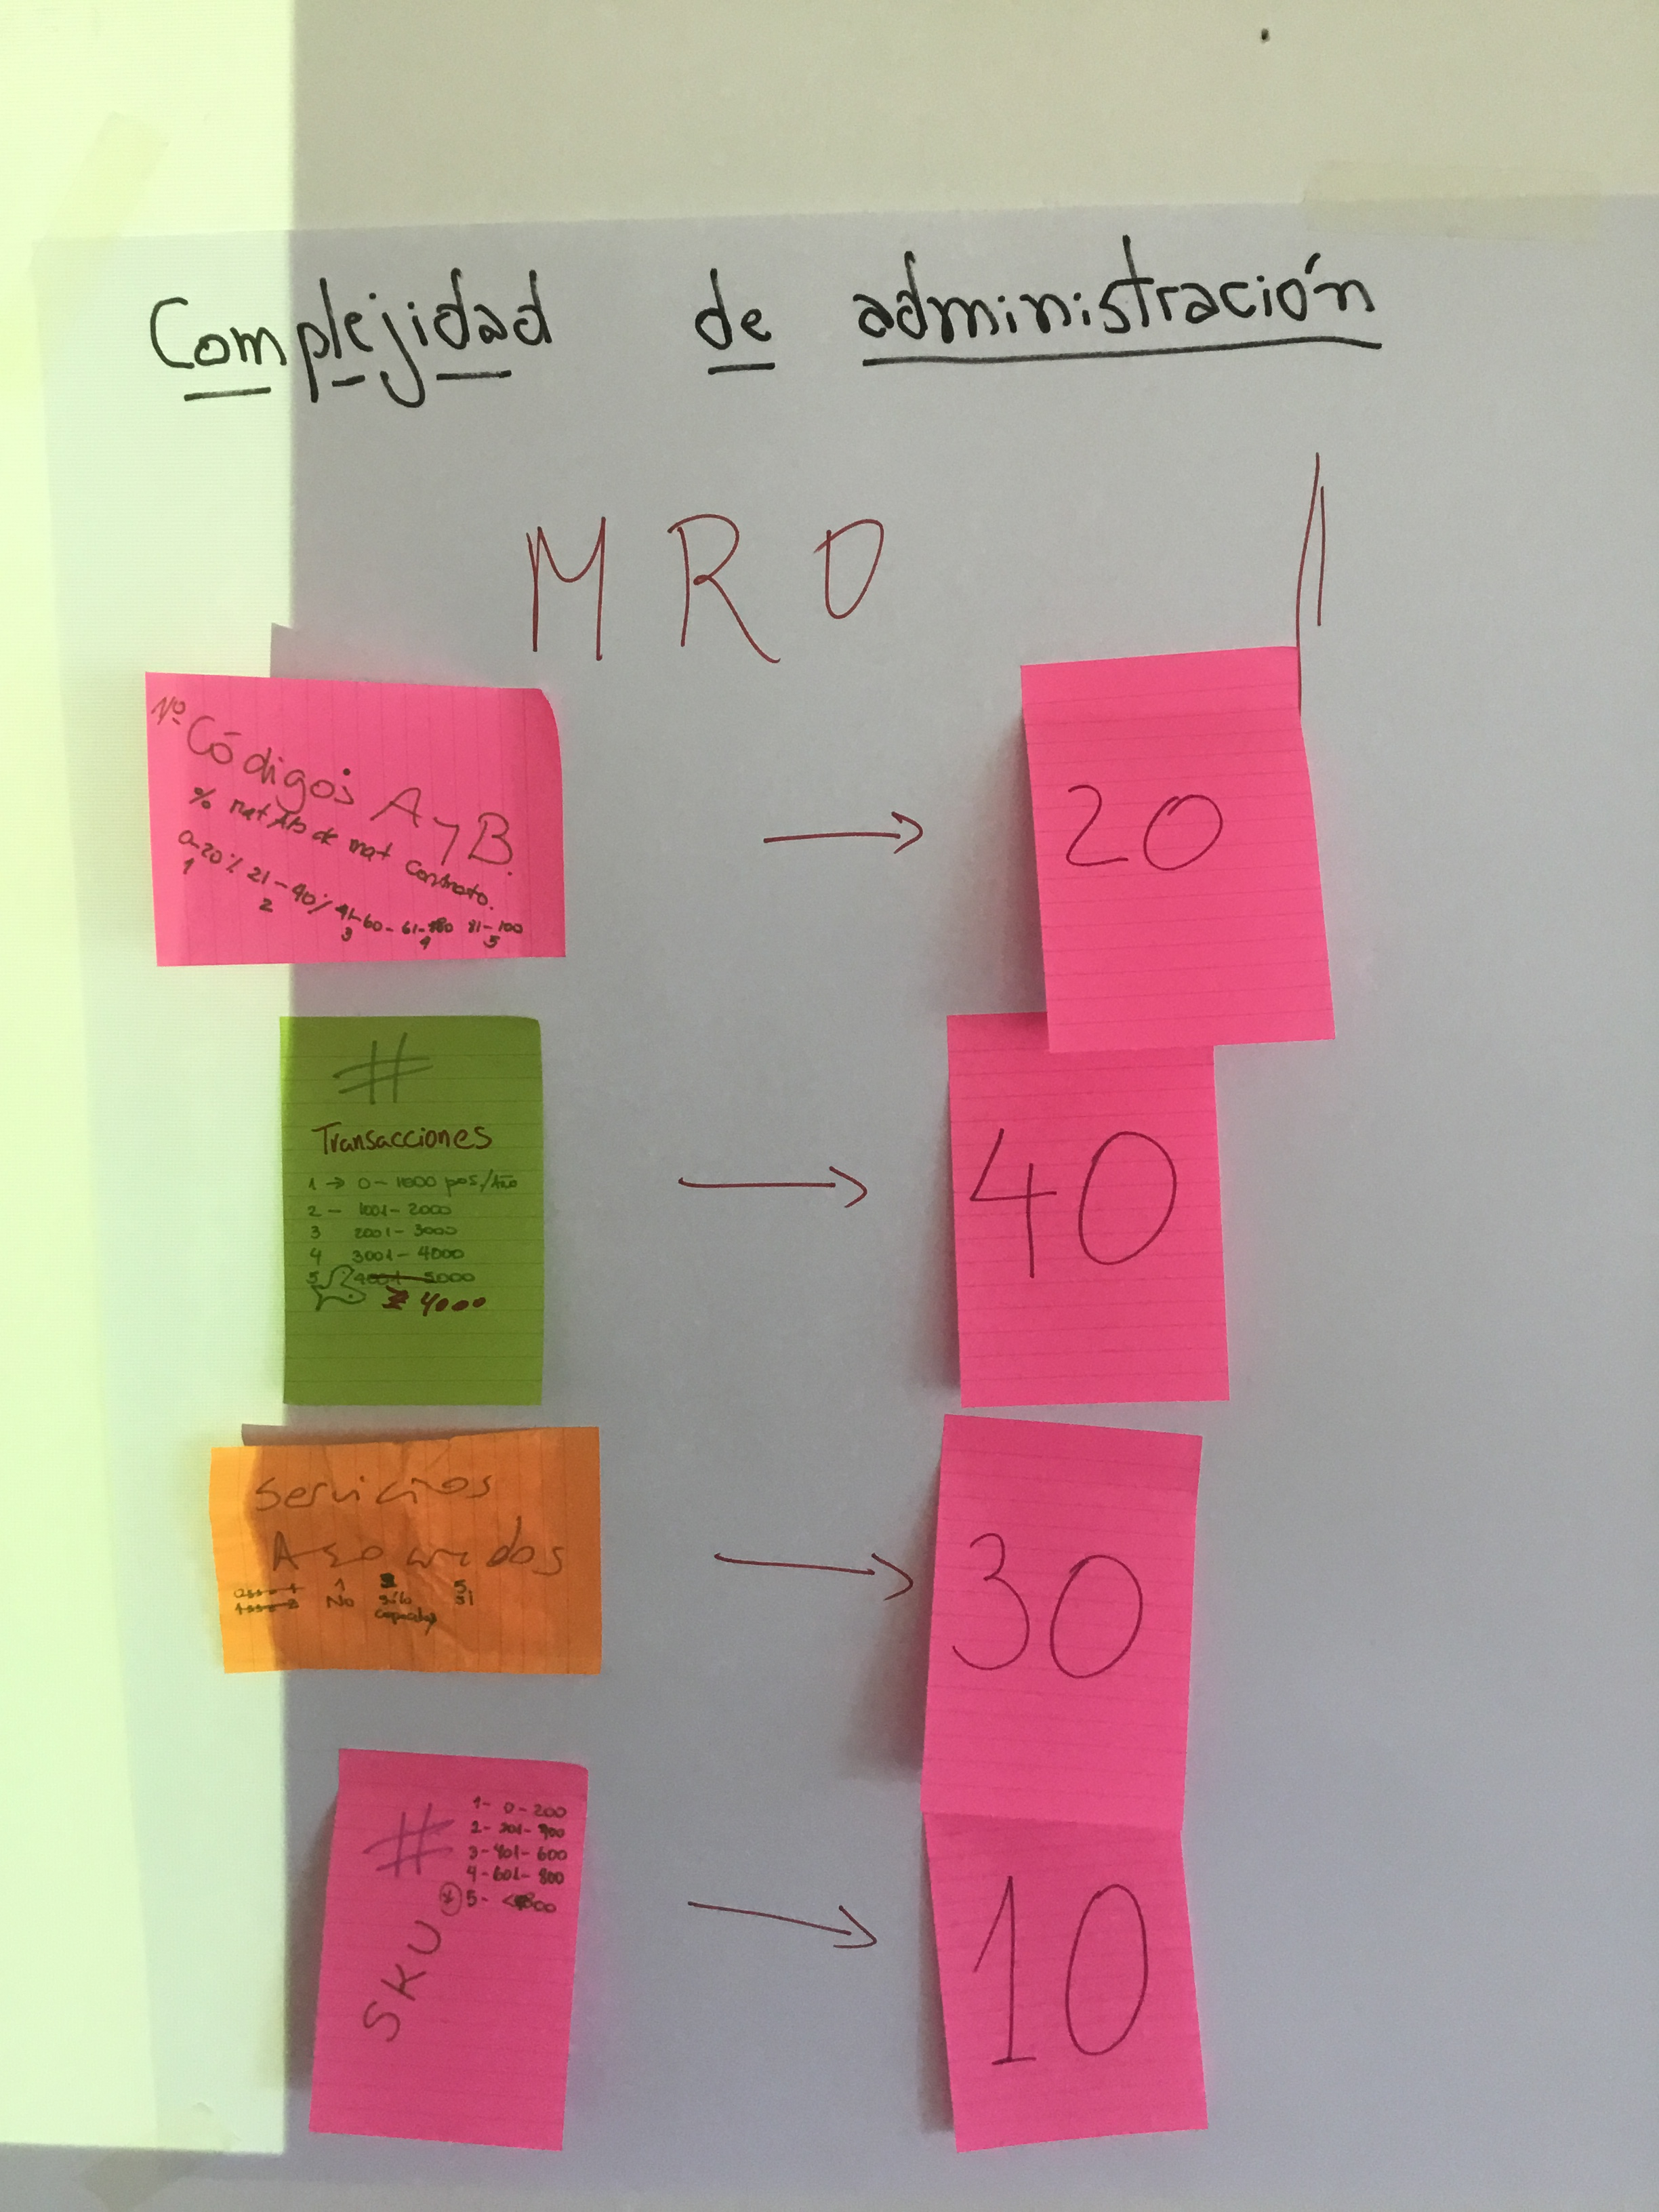 Complejidad de administración
MRO
Nº Códigos A y B
% mat AB de mat contrato.
0-20% 21-40% 41-60- 61-80 81-100
1 2 3 4 5
→ 20
#
Transacciones
1 → 0-1000 pos/Año
2 - 1001-2000
3 2001-3000
4 3001-4000
5 4001-5000
4000
→ 40
Servicios
Asociados
1 5
No sólo Si
→ 30
#
SKU
1- 0-200
2- 201-400
3-401-600
4-601-800
5- <800
→ 10